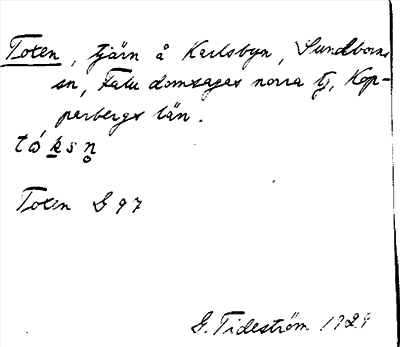 Toxen, tjärn å Karlsbyn, Sundborns
sn, Falu domsagas norra tg, Kop-
parbergs län.
tóksn̥
Toxen G 97
G. Tideström 1929